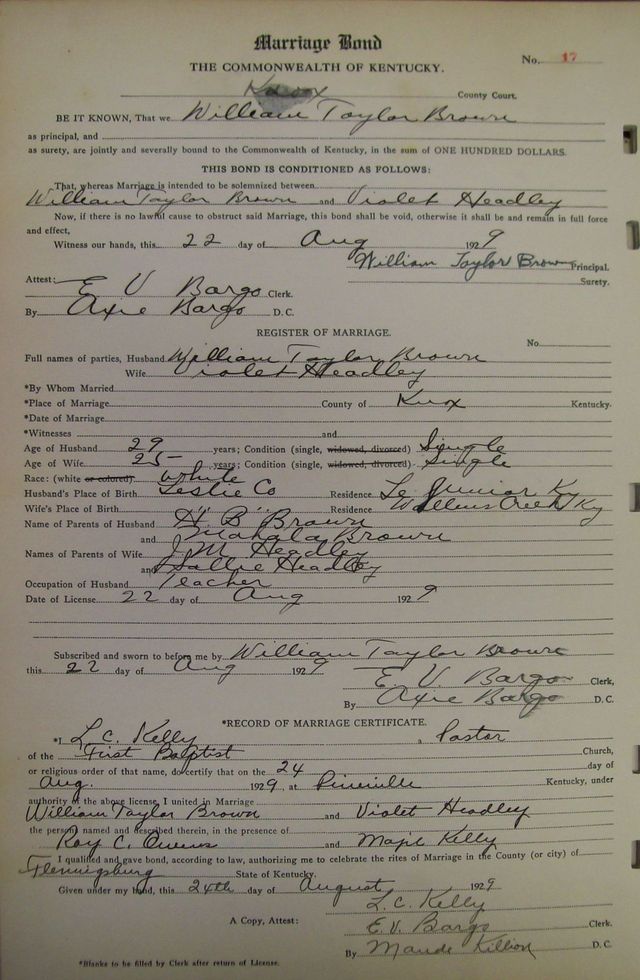 Marriage Bond
No. 17
THE COMMONWEALTH OF KENTUCKY.
Knox County Court.
BE IT KNOWN, That we William Taylor Brown
as principal, and
as surety, are jointly and severally bound to the Commonwealth of Kentucky, in the sum of ONE HUNDRED DOLLARS.
THIS BOND IS CONDITIONED AS FOLLOWS:
That, whereas Marriage is intended to be solemnized between
William Taylor Brown and Violet Headley
Now, if there is no lawful cause to obstruct said Marriage, this bond shall be void, otherwise it shall be and remain in full force
and effect,
Witness our hands, this 22 day of Aug 1929
William Taylor Brown Principal.
Surety.
Attest:
E V Bargo Clerk.
By Axie Bargo D. C.
REGISTER OF MARRIAGE.
No.
Full names of parties, Husband William Taylor Brown
Wife Violet Headley
*By Whom Married
*Place of Marriage County of Knox Kentucky.
*Date of Marriage
*Witnesses and
Age of Husband 29 years; Condition (single, widowed, divorced) Single
Age of Wife 25 years; Condition (single, widowed, divorced) Single
Race: (white or colored) White
Husband's Place of Birth Leslie Co Residence Le Junior Ky
Wife's Place of Birth " " Residence Wallins Creek Ky
Name of Parents of Husband H B Brown
and Mahala Brown
Names of Parents of Wife J M Headley
and Sallie Headley
Occupation of Husband Teacher
Date of License 22 day of Aug 1929
Subscribed and sworn to before me by William Taylor Brown
this 22 day of Aug 1929
E. V. Bargo Clerk,
By Axie Bargo D. C.
*RECORD OF MARRIAGE CERTIFICATE.
*I L. C. Kelly a Pastor
of the First Baptist Church,
or religious order of that name, do certify that on the 24 day of
Aug. 1929, at Pineville Kentucky, under
authority of the above license, I united in Marriage
William Taylor Brown and Violet Headley
the persons named and described therein, in the presence of
Roy C. Owens and Kelly
I qualified and gave bond, according to law, authorizing me to celebrate the rites of Marriage in the County (or city) of
Flemingsburg State of Kentucky.
Given under my hand, this 24th day of August 1929
L. C. Kelly
A Copy, Attest: E. V. Bargo Clerk.
By Maude Killion D. C.
*Blanks to be filled by Clerk after return of License.